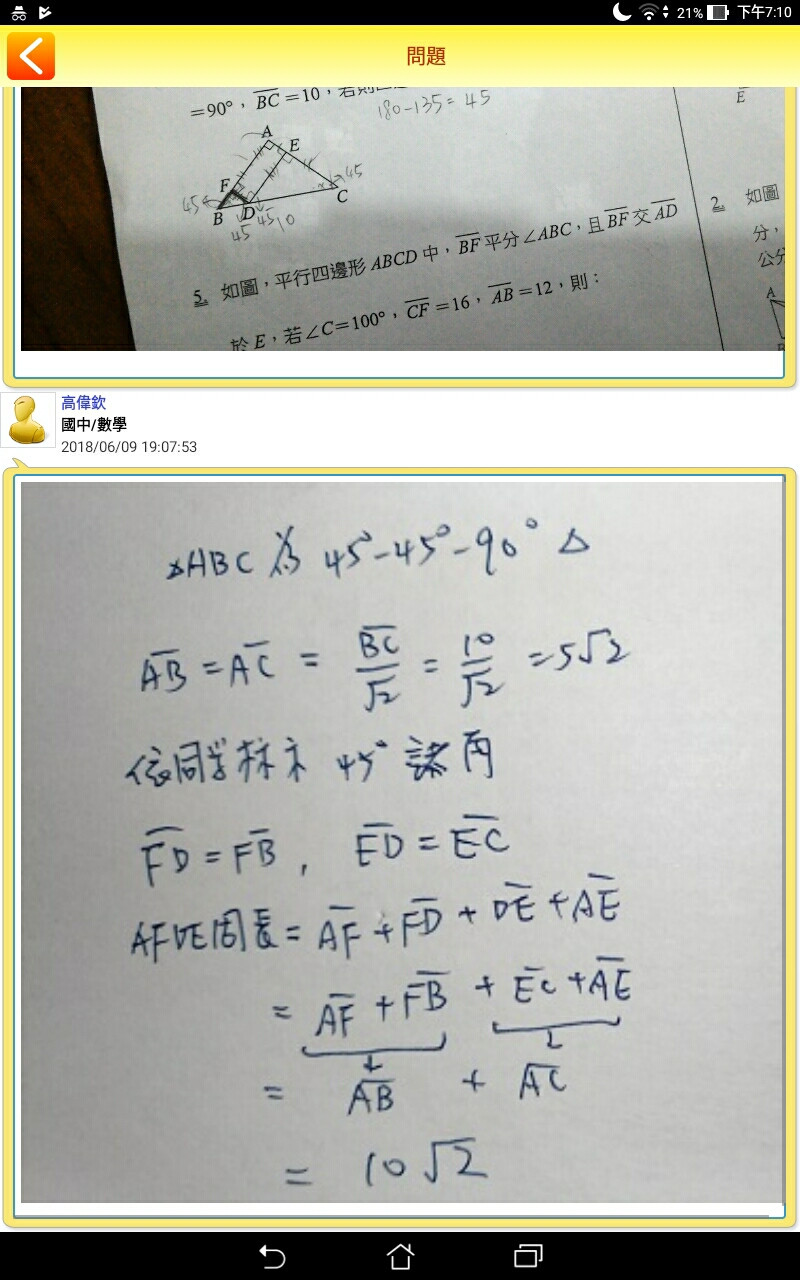 21% 下午7:10
問題
=90°,BC=10,若
180-135=45
E
A
E
45
F
45
C
B D
45 45 10
5. 如圖,平行四邊形ABCD中,BF平分∠ABC,且BF交AD
於E,若∠C=100°,CF=16,AB=12,則:
2. 如圖
分,
公分
A
B
高偉欽
國中/數學
2018/06/09 19:07:53
△ABC為 45°-45°-90°△
AB = AC = BC/√2 = 10/√2 = 5√2
依同學標示 45° 諸角
FD = FB , ED = EC
AFDE周長 = AF + FD + DE + AE
= AF + FB + EC + AE
= AB + AC
= 10√2